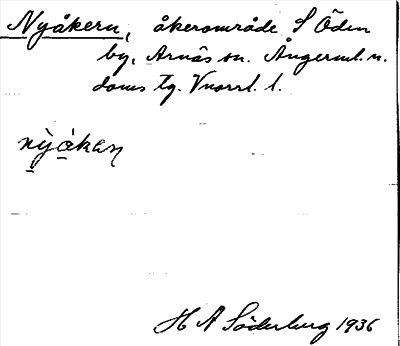 Nyåkern, åkerområde S Öden
by, Arnäs sn. Ångerml. n.
doms tg. Vnorrl. l.
nỳåkaɳ
H A Söderberg 1936